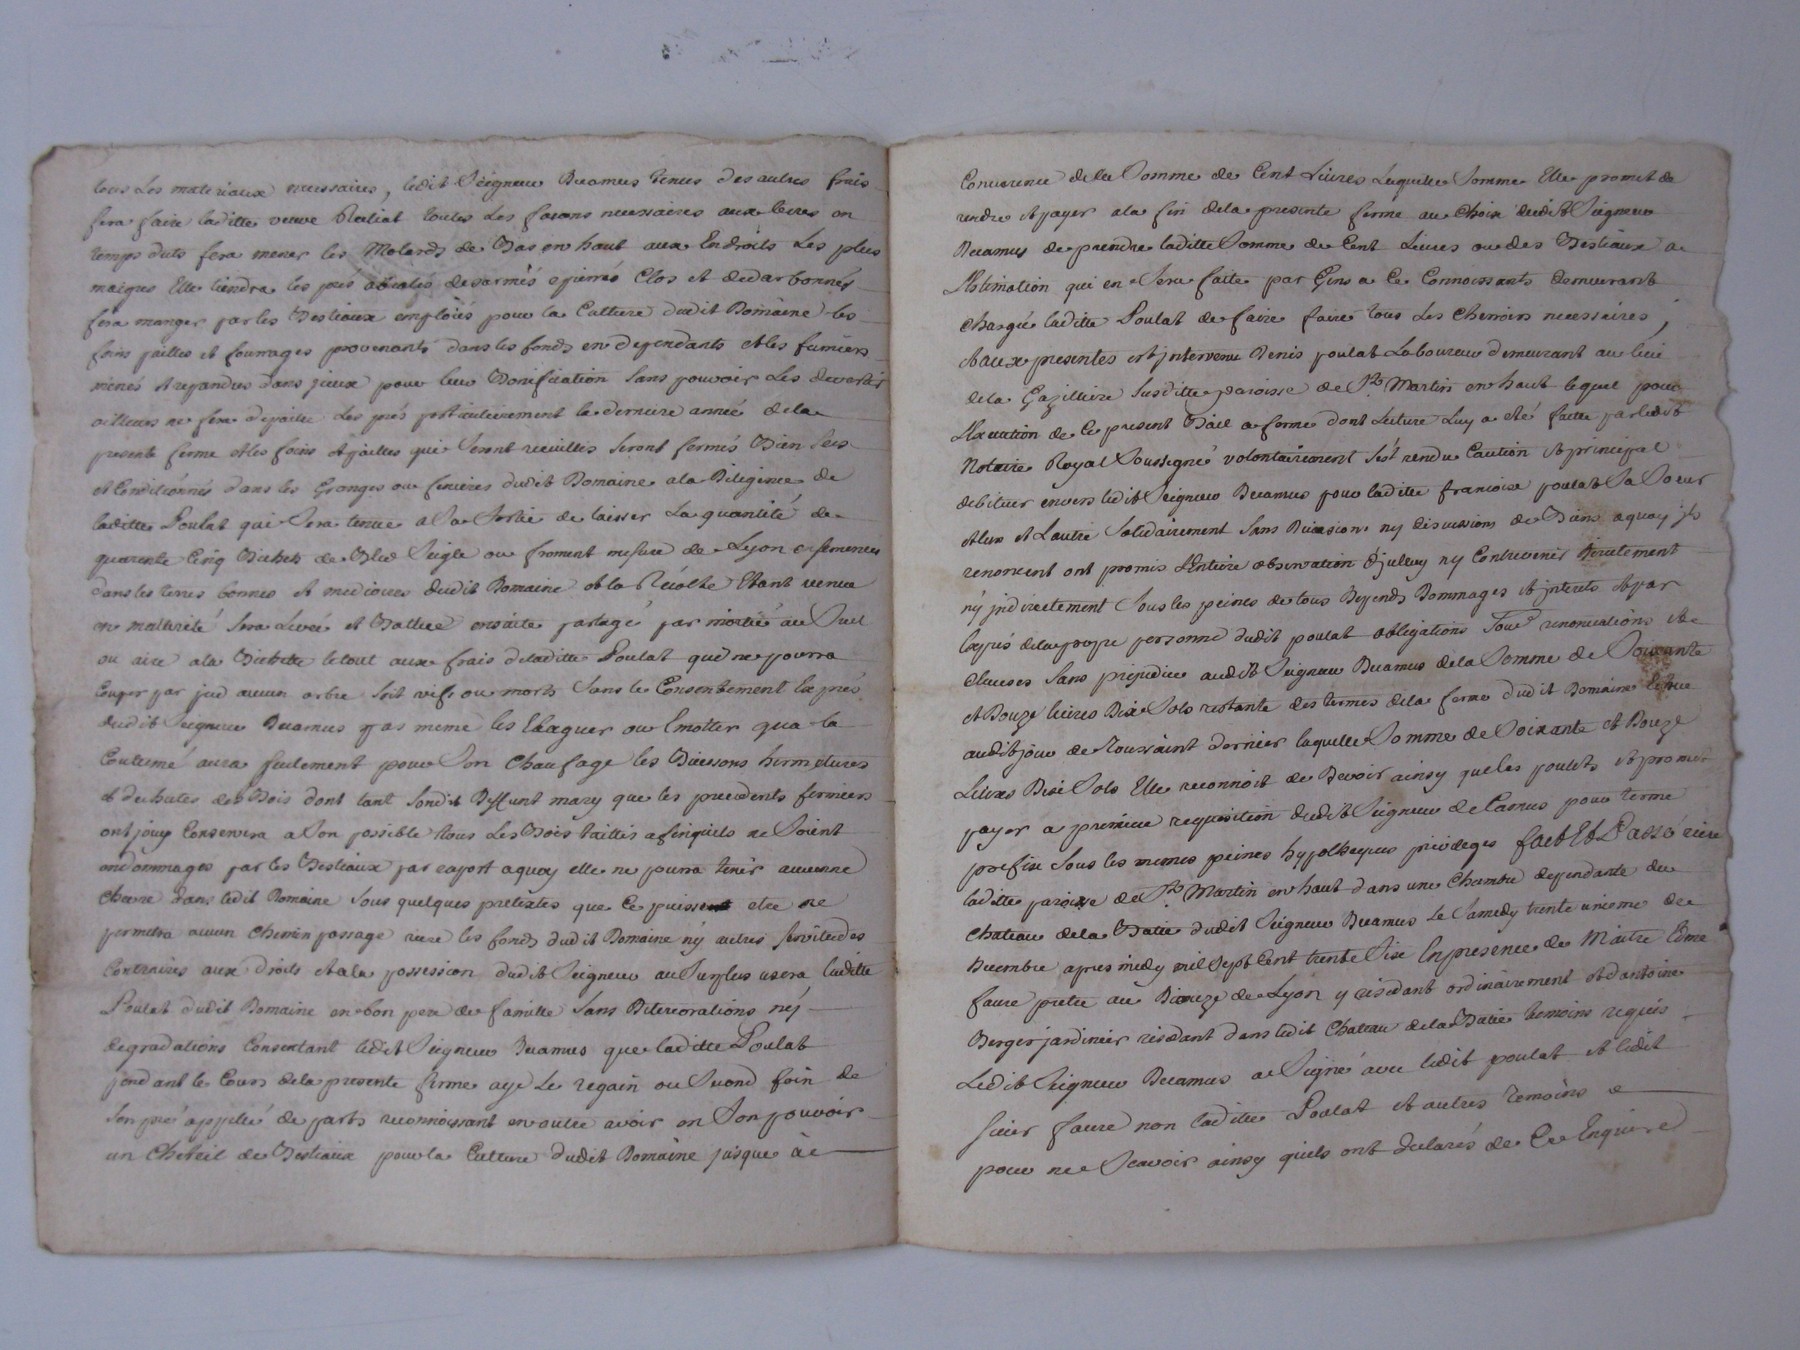 tous Les materiaux necessaires, ledit Seigneur Decamus tenus des autres frais
fera faire laditte veuve toutes Les façons necessaires aux terres en
temps duts fera mener les Molards de Bas en haut aux Endroits Les plus
maigres Elle tiendra les prés desarmés epierrés Clos et
fera manger par les Bestiaux emploïés pour la Culture dudit Domaine les
foins pailles et fourrages provenants dans les fonds en dependants et les fumiers
menés et repandres dans jceux pour leur Bonification Sans pouvoir Les divertir
ailleurs ne fera Les prés particulierement la derniere année de la
presente ferme et les foins et pailles qui Seront recüillis Seront fermés Bien Secs
et Conditionnés dans les Granges ou fenieres dudit Domaine a la Diligence de
laditte Poulat qui Sera tenue a Sa Sortie de laisser La quantité de
quarente Cinq Bichets de Bled Seigle ou froment mesure de Lyon ensemencés
dans les terres bonnes et mediocres dudit Domaine et la Récolte Etant venue
en maturité Sera Levée et Battue ensuite partagé par moitié au Suel
ou aire a la Bichette le tout aux frais de laditte Poulat qui ne pourra
Couper par pied aucun arbre Soit vifs ou morts Sans le Consentement Exprés
dudit Seigneur Decamus pas meme les Elaguer ou Emotter qua la
Coutumé aura Seulement pour Son Chaufage les Buissons
et des Bois dont tant Sondit Deffunt mary que les precedents fermiers
ont jouy Conservera a Son possible tous Les Bois taillis afinqu'ils ne Soient
endommagés par les Bestiaux par raport aquoy elle ne pourra tenir aucune
Chevre dans ledit Domaine Sous quelques pretextes que Ce puisse etre ne
permettra aucun Chemin passage riere les fonds dudit Domaine ny autres Servitudes
Contraires aux droits et a la possession dudit Seigneur au Surplus usera laditte
Poulat dudit Domaine en bon pere de famille Sans Deteriorations ny
degradations Consentant ledit Seigneur Decamus que laditte Poulat
pendant le Cours de la presente ferme aye Le regain ou Second foin de
Son pré appellé de parts reconnoissant en outre avoir en Son pouvoir
un Cheteil de Bestiaux pour la Culture dudit Domaine jusque à
Concurrence de la Somme de Cent Livres Laquelle Somme Elle promet de
rendre et payer a la fin de la presente ferme au Choix dudit Seigneur
Decamus de prendre laditte Somme de Cent Livres ou des Bestiaux a
L'Estimation qui en Sera faite par Gens a Ce Connoissants demeurant
Chargée laditte Poulat de faire faire tous Les Charrois necessaires,
et aux presentes est jntervenu Denis poulat Laboureur demeurant au lieu
de la Gazilliere Susditte paroisse de St Martin en haut lequel pour
L'Execution de Ce present Bail a ferme dont Lecture Luy a eté faitte par ledit
Notaire Royal Soussigné volontairement S'est rendu Caution et principal
debiteur envers ledit Seigneur Decamus pour laditte françoise poulat Sa Soeur
et L'un et L'autre Solidairement Sans Division ny discussions de Biens aquoy jls
renoncent ont promis L'Entiere observation d'jcelluy ny Contrevenir Directement
ny jndirectement Sous les peines de tous Depends Dommages et jnterets et par
Exprés de la propre personne dudit poulat obligations renonciations et
Clauses Sans prejudice audit Seigneur Decamus de la Somme de Soixante
et Douze livres Dix Sols restante des termes de la ferme dudit Domaine Echue
audit jour de Toussaint dernier laquelle Somme de Soixante et Douze
Livres Dix Sols Elle reconnoit de Devoir ainsy que les poulets et promet
payer a premiere requisition dudit Seigneur de Camus pour terme
prefix Sous les memes peines hypotheques privileges fait Et Passé riere
laditte paroisse de St Martin en haut dans une Chambre dependante du
Chateau de la Batie dudit Seigneur Decamus Le Samedy trente unieme de
Decembre apres midy mil Sept Cent trente Six En presence de Maitre Edme
faure pretre au Dioceze de Lyon y residant ordinairement et d'antoine
Berger jardinier residant dans ledit Chateau de la Batie temoins requis
Ledit Seigneur Decamus a Signé avec ledit poulat et ledit
Sieur faure non laditte Poulat et autres temoins
pour ne Scavoir ainsy quils ont declarés de Ce Enquis